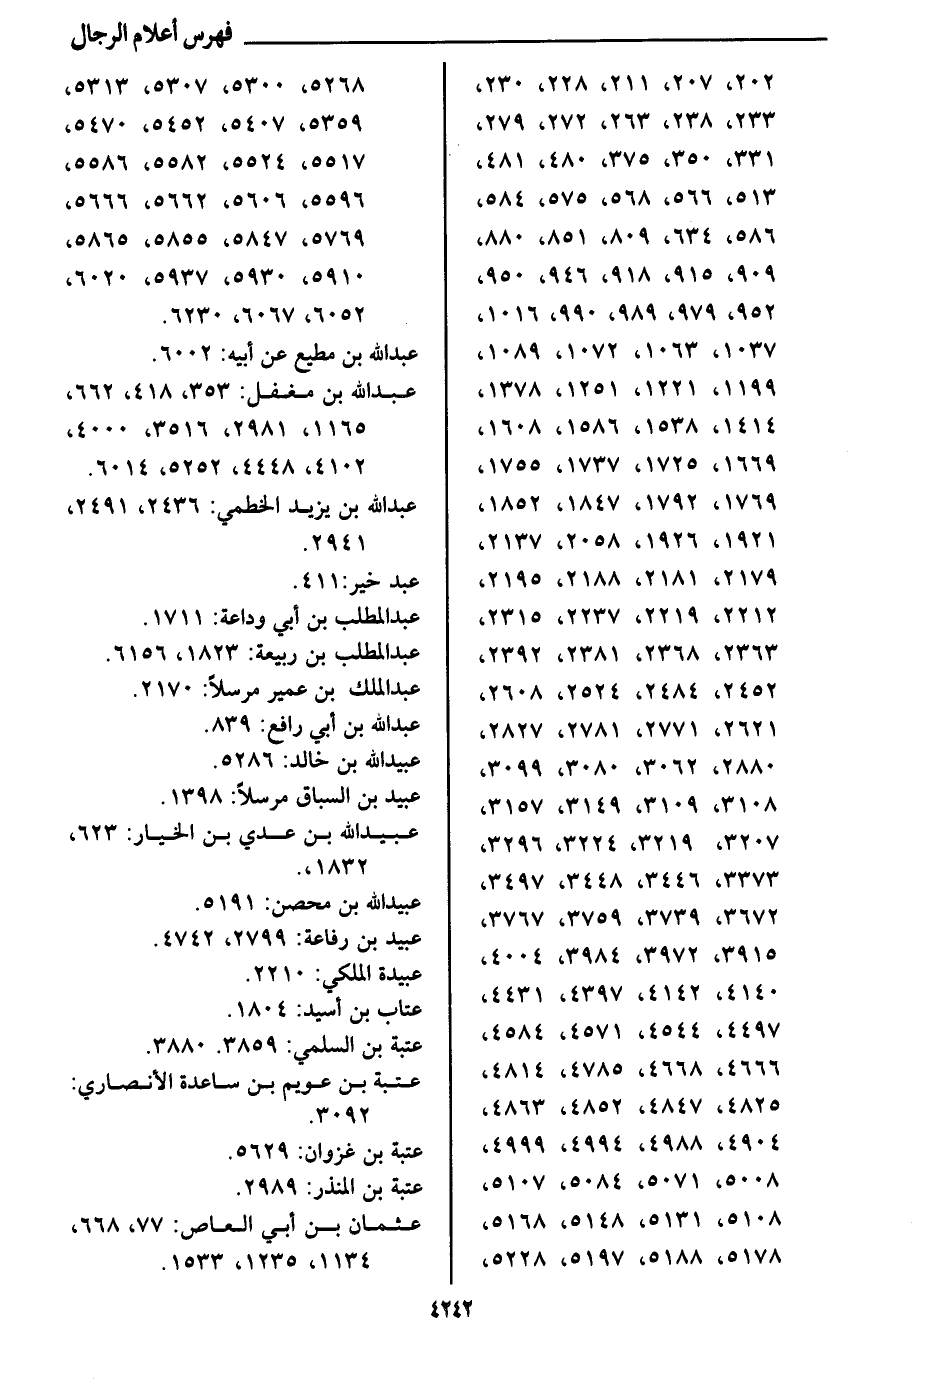 فهرس أعلام الرجال
٢٠٢، ٢٠٧، ٢١١، ٢٢٨، ٢٣٠،
٢٣٣، ٢٣٨، ٢٦٣، ٢٧٢، ٢٧٩،
٣٣١، ٣٥٠، ٣٧٥، ٤٨٠، ٤٨١،
٥١٣، ٥٦٦، ٥٦٨، ٥٧٥، ٥٨٤،
٥٨٦، ٦٣٤، ٨٠٩، ٨٥١، ٨٨٠،
٩٠٩، ٩١٥، ٩١٨، ٩٤٦، ٩٥٠،
٩٥٢، ٩٧٩، ٩٨٩، ٩٩٠، ١٠١٦،
١٠٣٧، ١٠٦٣، ١٠٧٢، ١٠٨٩،
١١٩٩، ١٢٢١، ١٢٥١، ١٣٧٨،
١٤١٤، ١٥٣٨، ١٥٨٦، ١٦٠٨،
١٦٦٩، ١٧٢٥، ١٧٣٧، ١٧٥٥،
١٧٦٩، ١٧٩٢، ١٨٤٧، ١٨٥٢،
١٩٢١، ١٩٢٦، ٢٠٥٨، ٢١٣٧،
٢١٧٩، ٢١٨١، ٢١٨٨، ٢١٩٥،
٢٢١٢، ٢٢١٩، ٢٢٣٧، ٢٣١٥،
٢٣٦٣، ٢٣٦٨، ٢٣٨١، ٢٣٩٢،
٢٤٥٢، ٢٤٨٤، ٢٥٢٤، ٢٦٠٨،
٢٦٢١، ٢٧٧١، ٢٧٨١، ٢٨٢٧،
٢٨٨٠، ٣٠٦٢، ٣٠٨٠، ٣٠٩٩،
٣١٠٨، ٣١٠٩، ٣١٤٩، ٣١٥٧،
٣٢٠٧، ٣٢١٩، ٣٢٢٤، ٣٢٩٦،
٣٣٧٣، ٣٤٤٦، ٣٤٤٨، ٣٤٩٧،
٣٦٧٢، ٣٧٣٩، ٣٧٥٩، ٣٧٦٧،
٣٩١٥، ٣٩٧٢، ٣٩٨٤، ٤٠٠٤،
٤١٤٠، ٤١٤٢، ٤٣٩٧، ٤٤٣١،
٤٤٩٧، ٤٥٤٤، ٤٥٧١، ٤٥٨٤،
٤٦٦٦، ٤٦٦٨، ٤٧٨٥، ٤٨١٤،
٤٨٢٥، ٤٨٤٧، ٤٨٥٢، ٤٨٦٣،
٤٩٠٤، ٤٩٨٨، ٤٩٩٤، ٤٩٩٩،
٥٠٠٨، ٥٠٧١، ٥٠٨٤، ٥١٠٧،
٥١٠٨، ٥١٣١، ٥١٤٨، ٥١٦٨،
٥١٧٨، ٥١٨٨، ٥١٩٧، ٥٢٢٨،
٥٢٦٨، ٥٣٠٠، ٥٣٠٧، ٥٣١٣،
٥٣٥٩، ٥٤٠٧، ٥٤٥٢، ٥٤٧٠،
٥٥١٧، ٥٥٢٤، ٥٥٨٢، ٥٥٨٦،
٥٥٩٦، ٥٦٠٦، ٥٦٦٢، ٥٦٦٦،
٥٧٦٩، ٥٨٤٧، ٥٨٥٥، ٥٨٦٥،
٥٩١٠، ٥٩٣٠، ٥٩٣٧، ٦٠٢٠،
٦٠٥٢، ٦٠٦٧، ٦٢٣٠.
عبدالله بن مطيع عن أبيه: ٦٠٠٢.
عبدالله بن مغفل: ٣٥٣، ٤١٨، ٦٦٢،
١١٦٥، ٢٩٨١، ٣٥١٦، ٤٠٠٠،
٤١٠٢، ٤٤٤٨، ٥٢٥٢، ٦٠١٤.
عبدالله بن يزيد الخطمي: ٢٤٣٦، ٢٤٩١،
٢٩٤١.
عبد خير:٤١١.
عبدالمطلب بن أبي وداعة: ١٧١١.
عبدالمطلب بن ربيعة: ١٨٢٣، ٦١٥٦.
عبدالملك بن عمير مرسلاً: ٢١٧٠.
عبدالله بن أبي رافع: ٨٣٩.
عبيدالله بن خالد: ٥٢٨٦.
عبيد بن السباق مرسلاً: ١٣٩٨.
عبيدالله بن عدي بن الخيار: ٦٢٣،
١٨٣٢،.
عبيدالله بن محصن: ٥١٩١.
عبيد بن رفاعة: ٢٧٩٩، ٤٧٤٢.
عبيدة الملكي: ٢٢١٠.
عتاب بن أسيد: ١٨٠٤.
عتبة بن السلمي: ٣٨٥٩. ٣٨٨٠.
عتبة بن عويم بن ساعدة الأنصاري:
٣٠٩٢.
عتبة بن غزوان: ٥٦٢٩.
عتبة بن المنذر: ٢٩٨٩.
عثمان بن أبي العاص: ٧٧، ٦٦٨،
١١٣٤، ١٢٣٥، ١٥٣٣.
٤٢٤٢